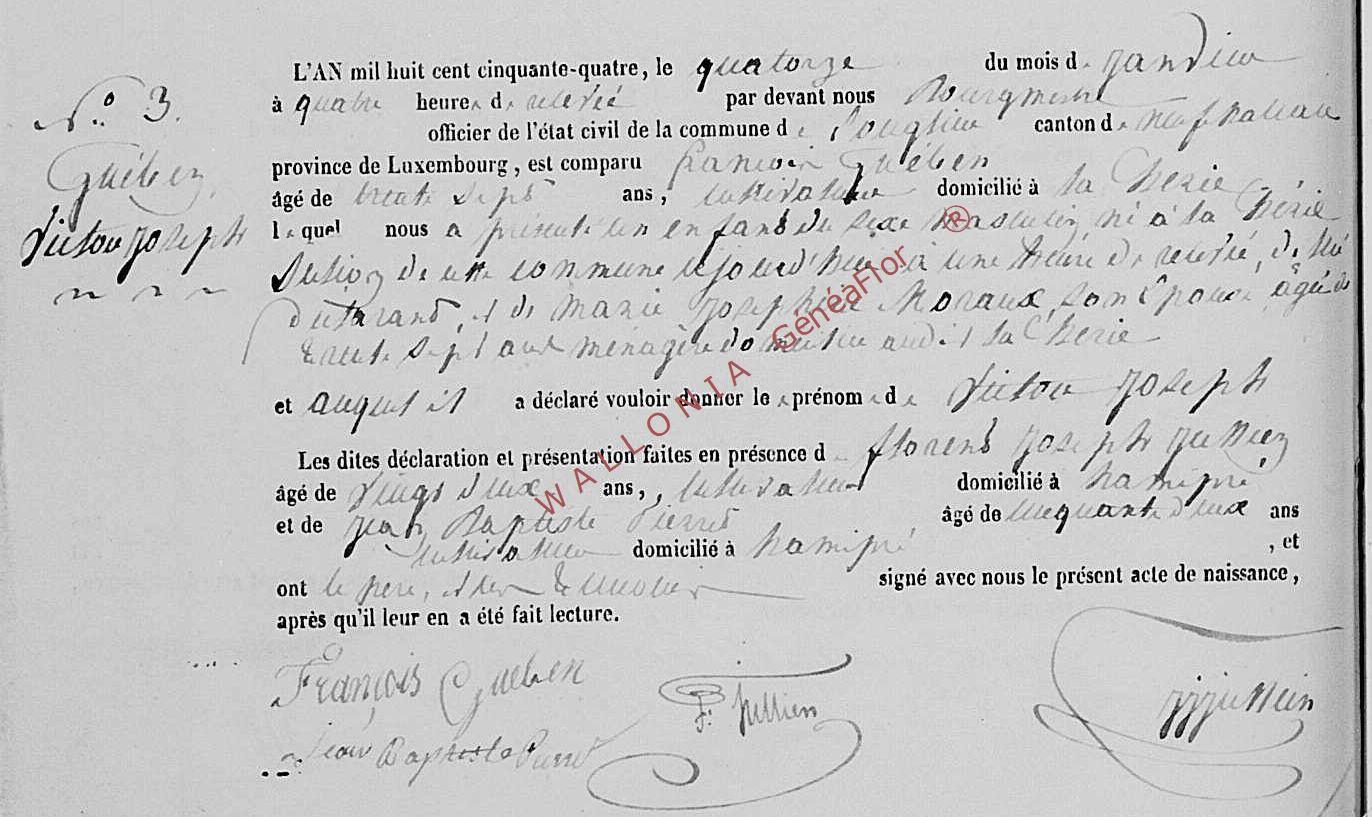 N.° 3.
Guében
Victor Joseph
L'AN mil huit cent cinquante-quatre, le quatorze du mois de janvier
à quatre heures de relevée par devant nous Bourgmestre
officier de l'état civil de la commune de Longlier canton de Neufchateau
province de Luxembourg, est comparu François Guében
âgé de trente sept ans, cultivateur domicilié à la Hérie
lequel nous a présenté un enfant du sexe masculin, né à la Hérie
Section de cette commune cejourd'hui à une heure de relevée, de lui
déclarant, et de Marie Josephée Moraux, son épouse, âgée de
trente sept ans ménagère domiciliée audit la Hérie
et auquel il a déclaré vouloir donner les prénoms de Victor Joseph
Les dites déclaration et présentation faites en présence de Florent Joseph Jullien
âgé de vingt deux ans, cultivateur domicilié à hamipré
et de Jean Baptiste Pierret âgé de cinquante deux ans
cultivateur domicilié à hamipré , et
ont le père, et les témoins signé avec nous le présent acte de naissance,
après qu'il leur en a été fait lecture.
François Gueben
F: Jullien
Jean Baptiste Pierret
WALLONIA GénéaFlor ®